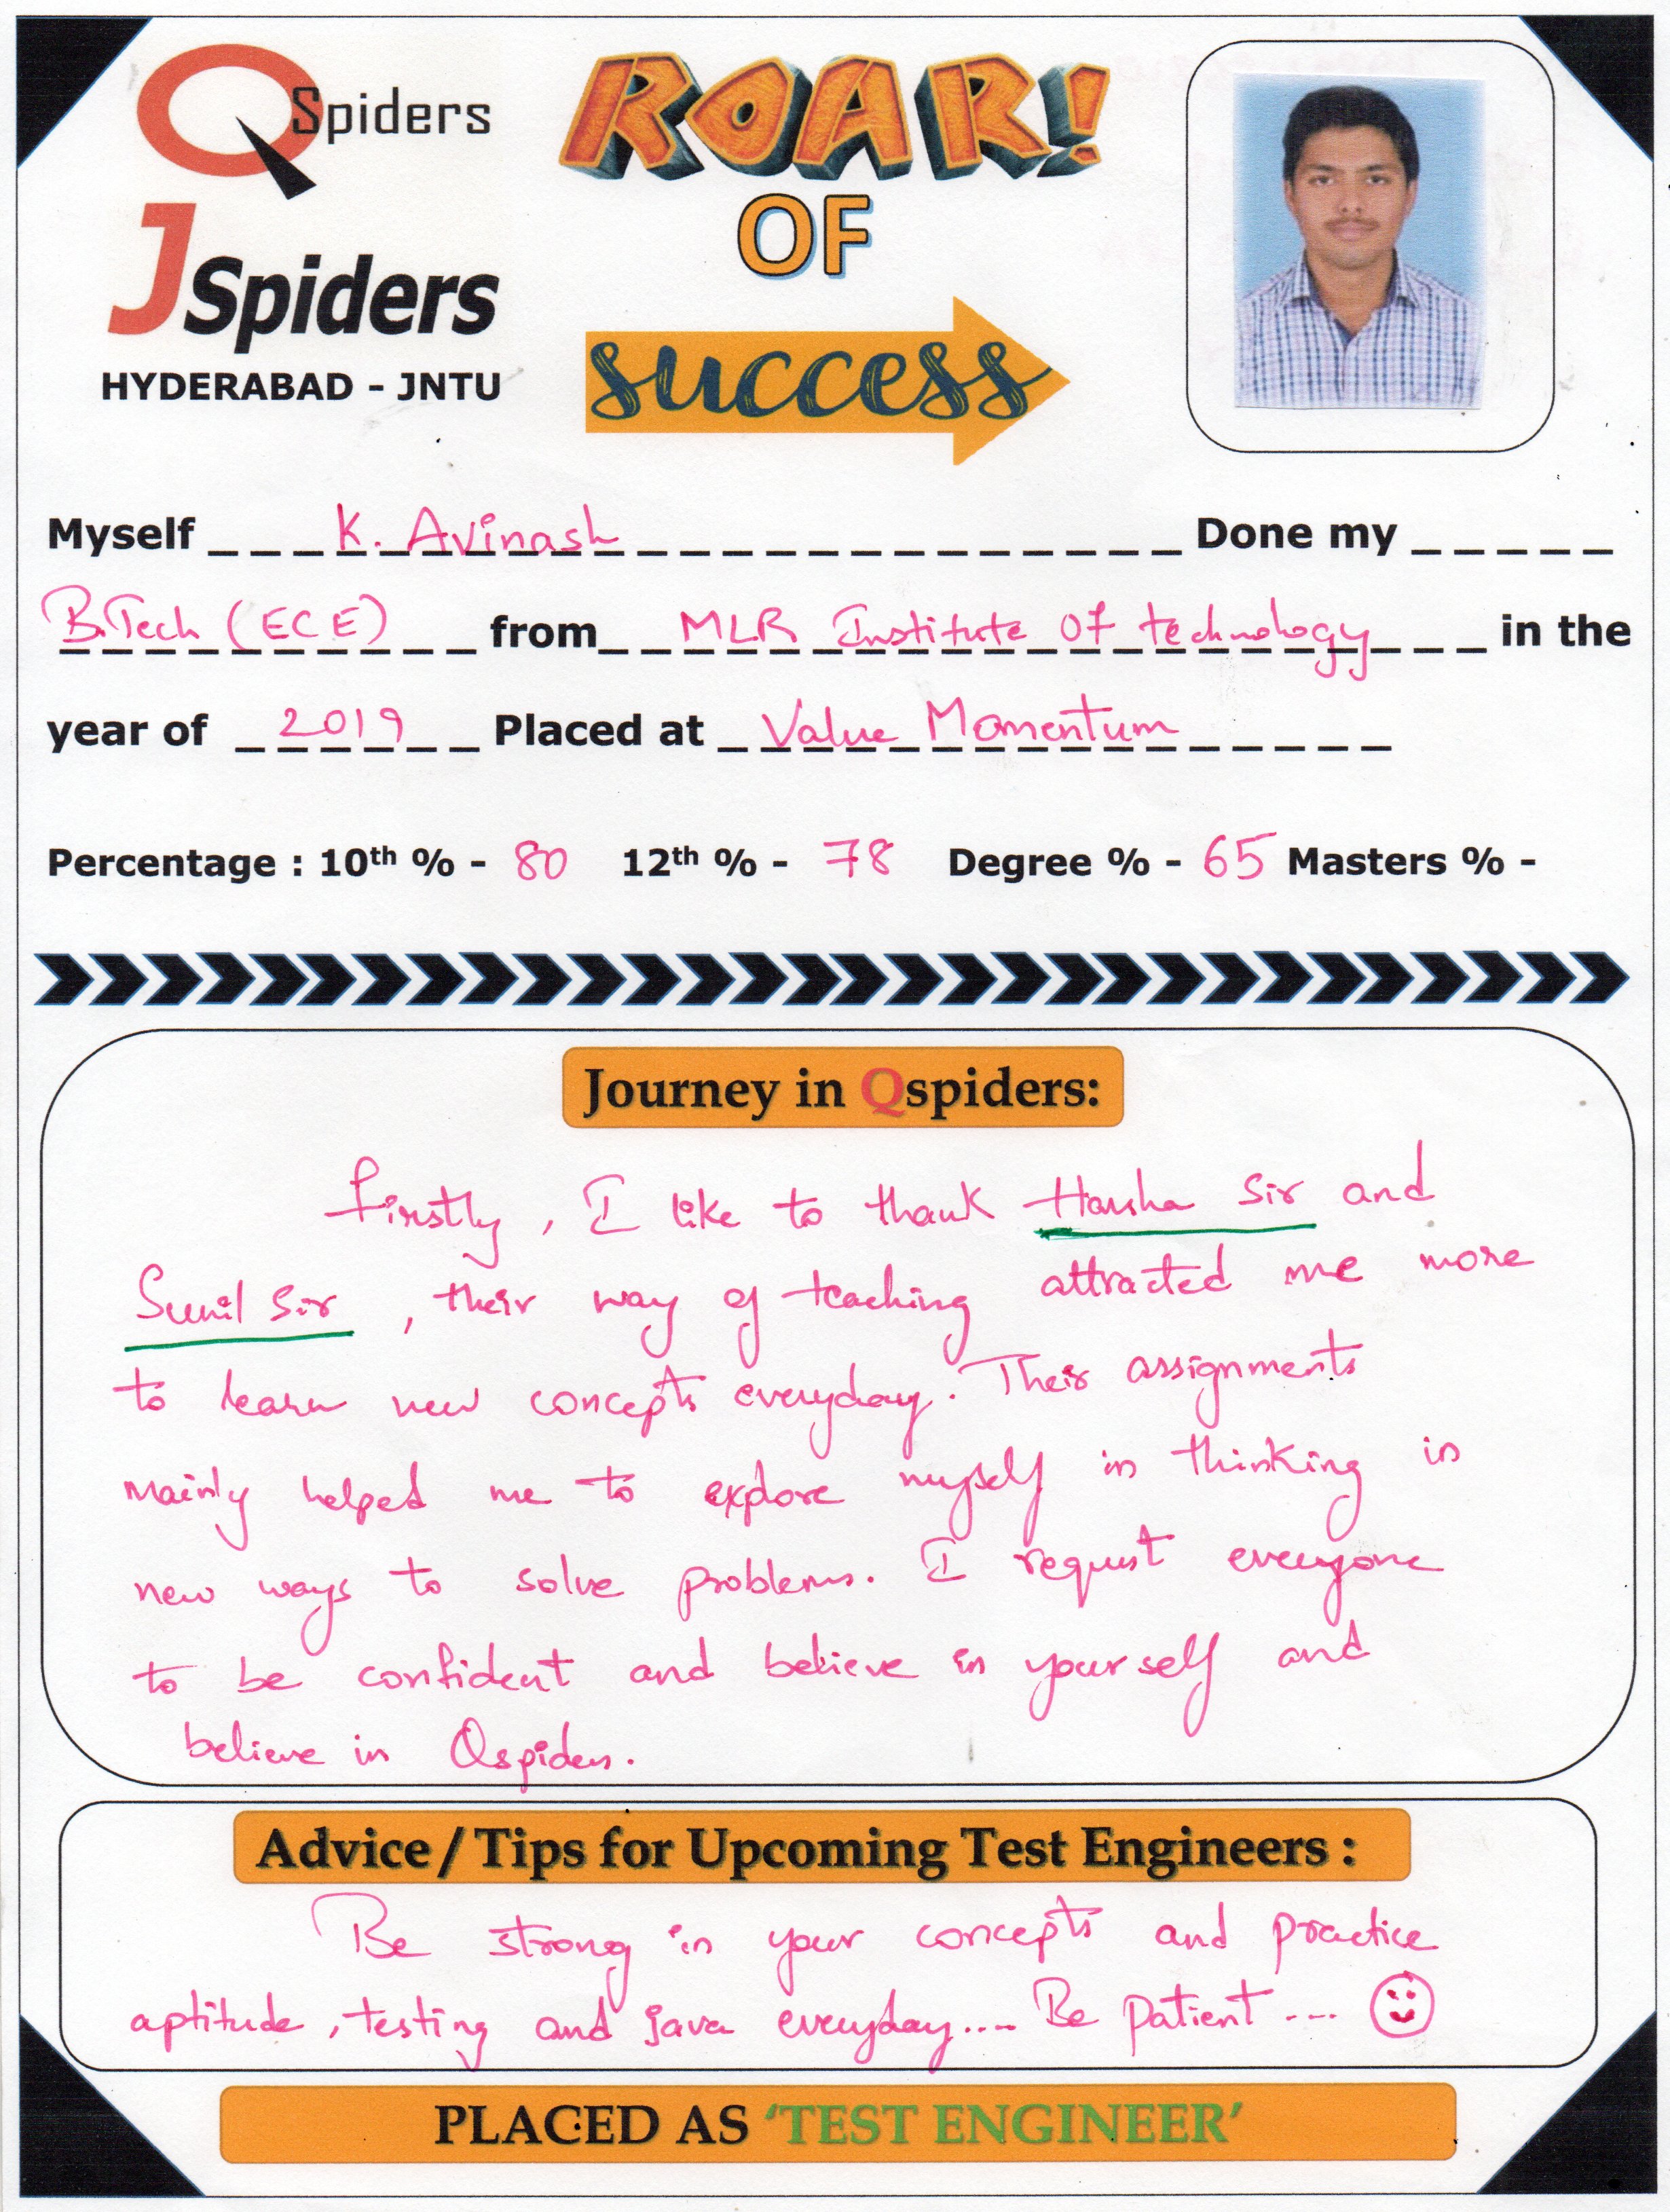 QSpiders
JSpiders
HYDERABAD - JNTU
ROAR!
OF
success
Myself K. Avinash Done my
B.Tech (ECE) from MLR Institute Of technology in the
year of 2019 Placed at Value Momentum
Percentage : 10th % - 80 12th % - 78 Degree % - 65 Masters % -
Journey in Qspiders:
Firstly, I like to thank Harsha Sir and
Sunil Sir, their way of teaching attracted me more
to learn new concepts everyday. Their assignments
mainly helped me to explore myself in thinking in
new ways to solve problems. I request everyone
to be confident and believe in yourself and
believe in Qspiders.
Advice / Tips for Upcoming Test Engineers :
Be strong in your concepts and practice
aptitude, testing and java everyday.... Be patient ....
PLACED AS 'TEST ENGINEER'